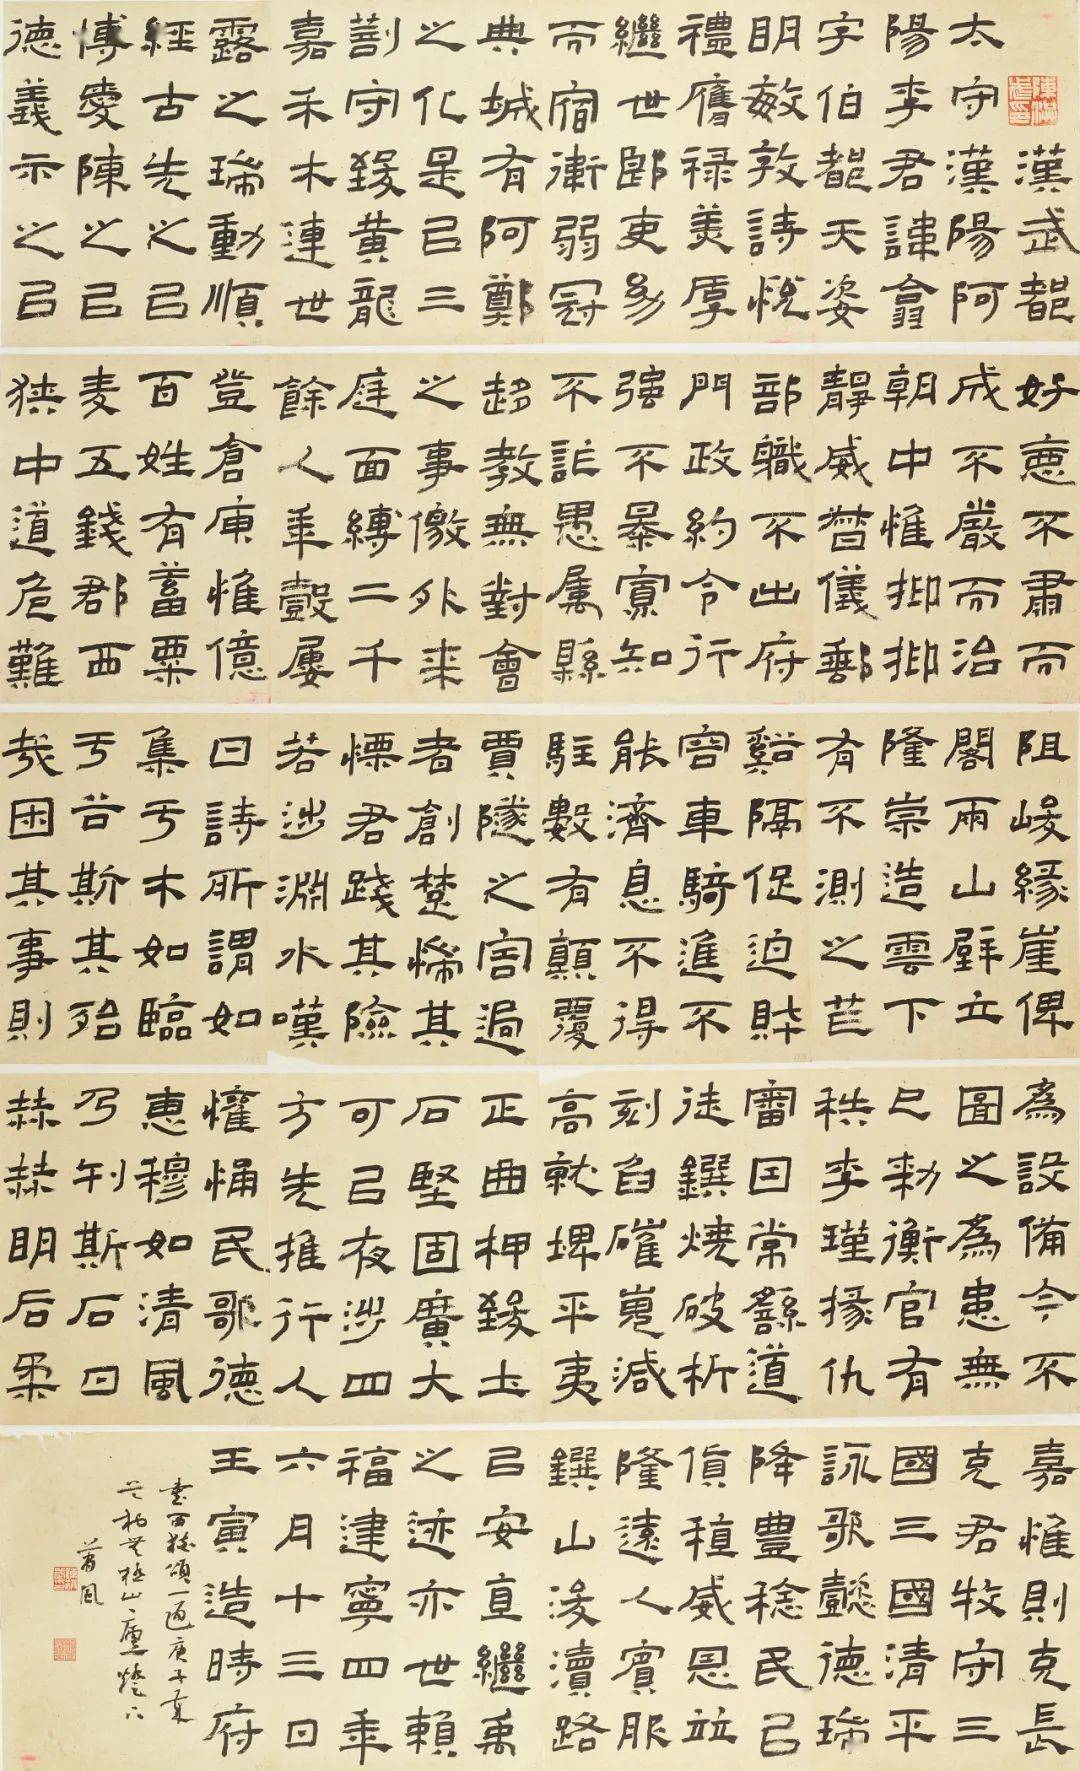 漢武都
太守漢陽阿
陽李君諱翕
字伯都天姿
明敏敦詩悅
禮膺禄美厚
繼世郎吏幼
而宿衛弱冠
典城有阿鄭
之化是㠯三
剖守致黄龍
嘉禾木連世
露之瑞動順
經古先之㠯
博愛陳之㠯
德義示之㠯
好惡不肅而
成不嚴而治
朝中惟抑抑
靜威督儀郵
部職不出府
門政約令行
强不暴寡知
不詐愚属縣
趍教無對會
之事儌外来
庭面縛二千
餘人年穀屢
登倉庾惟億
百姓有蓄粟
麦五錢郡西
狭中道危難
阻峻緣崖俾
閣兩山壁立
隆崇造雲下
有不測之芒
谿隔促迫財
容車騎進不
能濟息不得
駐數有顛覆
賈隧之害過
者創楚惴其
慄君踐其險
若涉淵水嘆
曰詩所謂如
集于木如臨
于谷斯其殆
哉困其事則
為設備今不
圖之為患無
已勑衡官有
秩李瑾掾仇
審因常繇道
徒鐉燒破析
刻臽磪嵬減
高就埤平夷
正曲柙致土
石堅固廣大
可㠯夜涉四
方先推行人
懽悀民歌德
惠穆如清風
乃刊斯石曰
赫赫明后柔
嘉惟則克長
克君牧守三
國三國清平
詠歌懿德瑞
降豊稔民㠯
貨稙威恩竝
隆遠人賓服
鐉山浚瀆路
㠯安直繼禹
之迹亦世賴
福建寧四年
六月十三日
壬寅造時府
書西狭頌一通庚子
山廬燈下